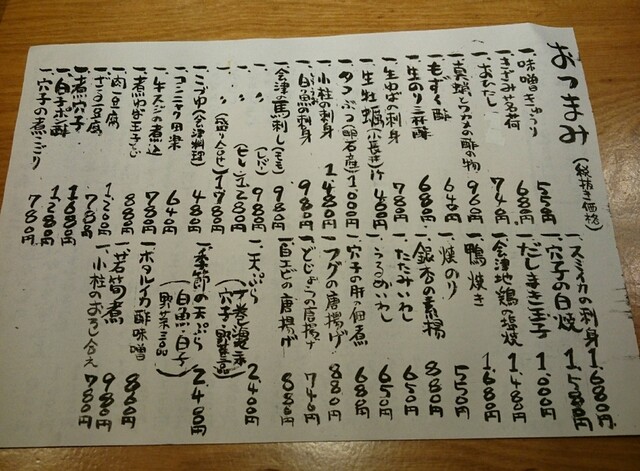 おつまみ(税抜き価格)
一、味噌きゅうり 550円
一、きざみ茗荷 680円
一、おひたし 740円
一、真蛸とワカメの酢の物 960円
一、もずく酢 640円
一、生のり三杯酢 680円
一、生ゆばの刺身 780円
一、生牡蠣(小長井)1ヶ 480円
一、タコぶつ(明石産) 1,000円
一、小柱の刺身 1,480円
一、白魚の刺身 980円
一、会津馬刺し(モモ) 980円
一、〃(レバー) 980円
一、〃(ヒレ) 1,280円
一、〃(盛り合せ) 1,980円
一、こづゆ(会津料理) 480円
一、コンニャク田楽 640円
一、牛スジの煮込 780円
一、煮わかめ玉子とじ 880円
一、肉豆腐 1,200円
一、ざる豆腐 780円
一、煮穴子 1,680円
一、白子ポン酢 1,280円
一、穴子の煮こごり 780円
一、スミイカの刺身 1,680円
一、穴子の白焼 1,580円
一、だしまき玉子 1,000円
一、会津地鶏の塩焼 1,480円
一、鴨焼き 1,680円
一、焼のり 550円
一、銀杏の素揚 880円
一、たたみいわし 650円
一、うるめいわし 650円
一、穴子の肝の佃煮 680円
一、フグの唐揚げ 880円
一、どじょうの唐揚げ 740円
一、白エビの唐揚げ 880円
一、天ぷら 2,400円
(才巻海老
穴子・野菜三品)
一、季節の天ぷら 2,480円
(白魚・白子
野菜三品)
一、ホタルイカ酢味噌 860円
一、若筍煮 980円
一、小柱のおろし合え 780円